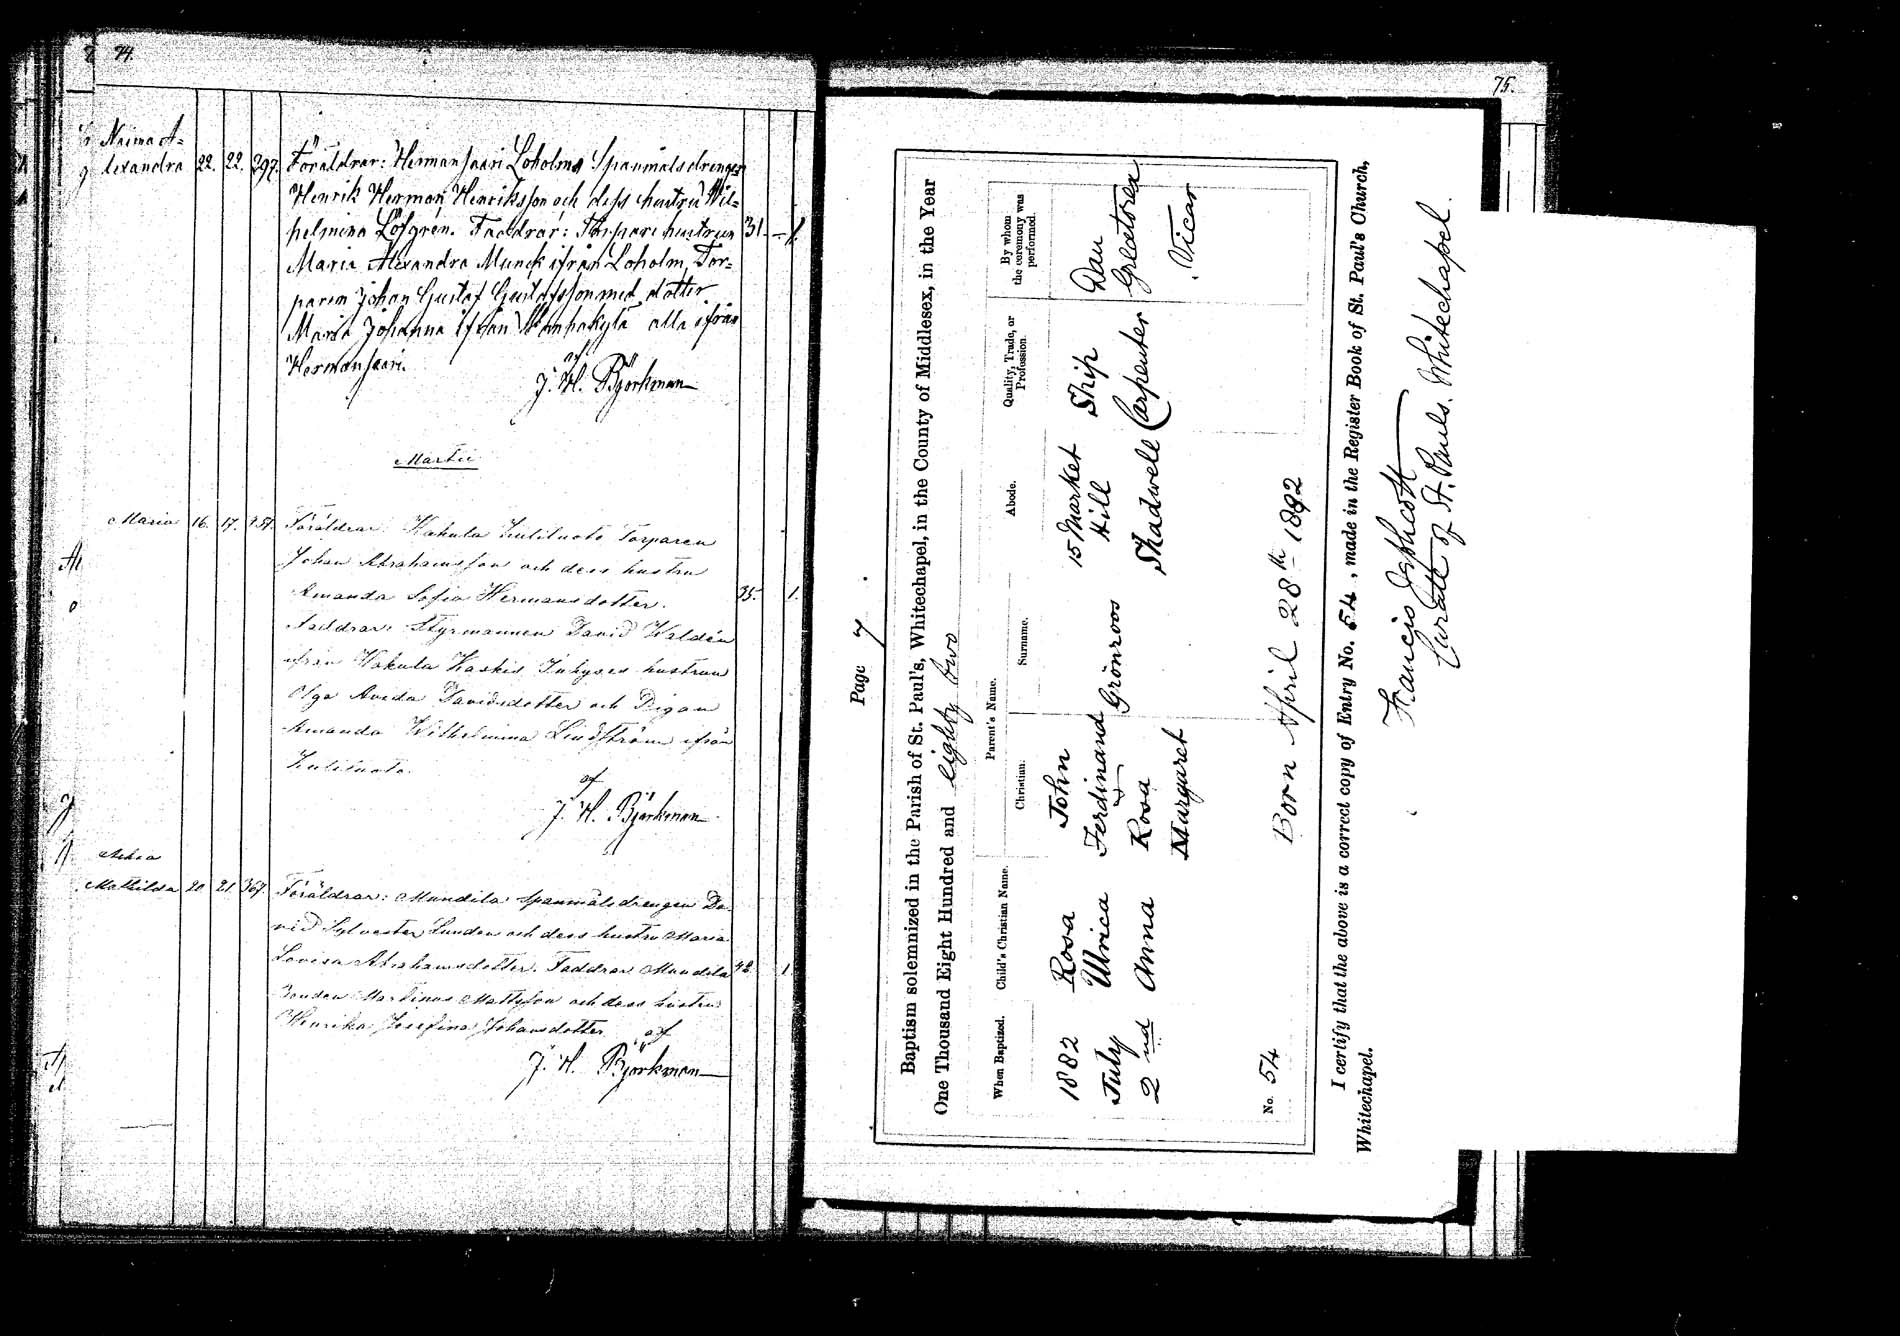 74.
Naima A-
lexandra 22. 22. 297. Föräldrar: Hermansaari Loholma Spanmålsdrengen
Henrik Herman Henriksson och dess hustru Wil-
helmina Löfgrén. Faddrar: Torpare hustrun 31. - 1.
Maria Alexandra Munck ifrån Loholm, Tor-
paren Johan Gustaf Gustafsson med dotter
Maria Johanna ifrån alla ifrån
Hermansaari.
af
J. H. Björkman
Martii
Maria 16. 17. Föräldrar: Kakula Torparen
Johan Abrahamsson och dess hustru
Amanda Sofia Hermansdotter. 35. 1.
Faddrar: Styrmannen David Waldén
ifrån Kakula Inhyses hustrun
Olga Davidsdotter och Pigan
Amanda Wilhelmina Lindström ifrån
af
J. H. Björkman
Mathilda 20. 21. 367. Föräldrar: Mundila Spanmålsdrengen Da-
vid Sylvester Lundén och dess hustru Maria
Lovisa Abrahamsdotter. Faddrar Mundila 42. 1.
Bonden Martinus Mattsson och dess hustru
Henrika Josefina Johansdotter
af
J. H. Björkman
75.
Page 7
Baptism solemnized in the Parish of St. Paul's, Whitechapel, in the County of Middlesex, in the Year
One Thousand Eight Hundred and eighty two
When Baptized. Child's Christian Name. Parent's Name. Abode. Quality, Trade, or Profession. By whom the ceremony was performed.
Christian. Surname.
1882 Rosa John 15 Market Ship Dan
July Ulrica Ferdinand Grönroos Hill Carpenter Greatorex
2nd Anna & Rosa Shadwell Vicar
Margaret
No. 54 Born April 28th 1882
I certify that the above is a correct copy of Entry No. 54, made in the Register Book of St. Paul's Church,
Whitechapel.
Francis Jephcott
Curate of St. Pauls. Whitechapel.